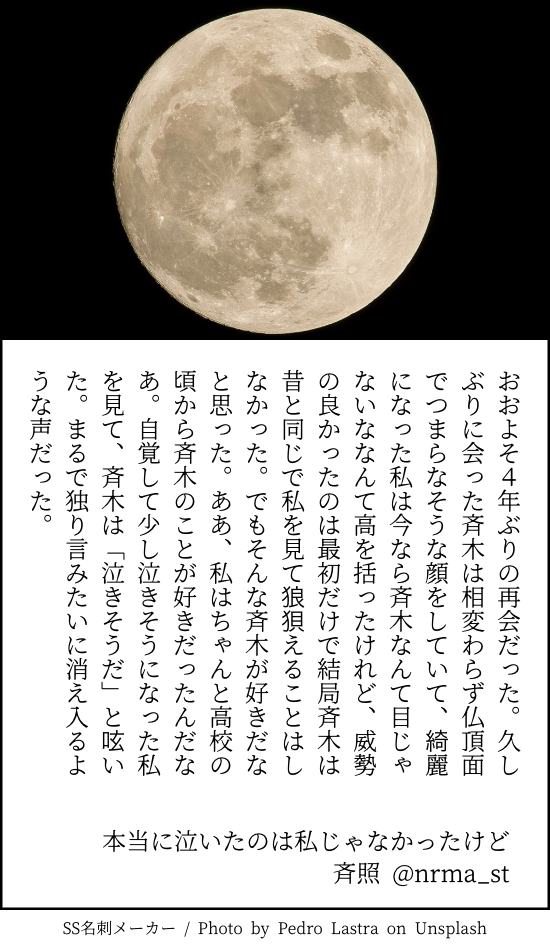 おおよそ４年ぶりの再会だった。久し
ぶりに会った斉木は相変わらず仏頂面
でつまらなそうな顔をしていて、綺麗
になった私は今なら斉木なんて目じゃ
ないななんて高を括ったけれど、威勢
の良かったのは最初だけで結局斉木は
昔と同じで私を見て狼狽えることはし
なかった。でもそんな斉木が好きだな
と思った。ああ、私はちゃんと高校の
頃から斉木のことが好きだったんだな
あ。自覚して少し泣きそうになった私
を見て、斉木は「泣きそうだ」と呟い
た。まるで独り言みたいに消え入るよ
うな声だった。
本当に泣いたのは私じゃなかったけど
斉照 @nrma_st
SS名刺メーカー / Photo by Pedro Lastra on Unsplash